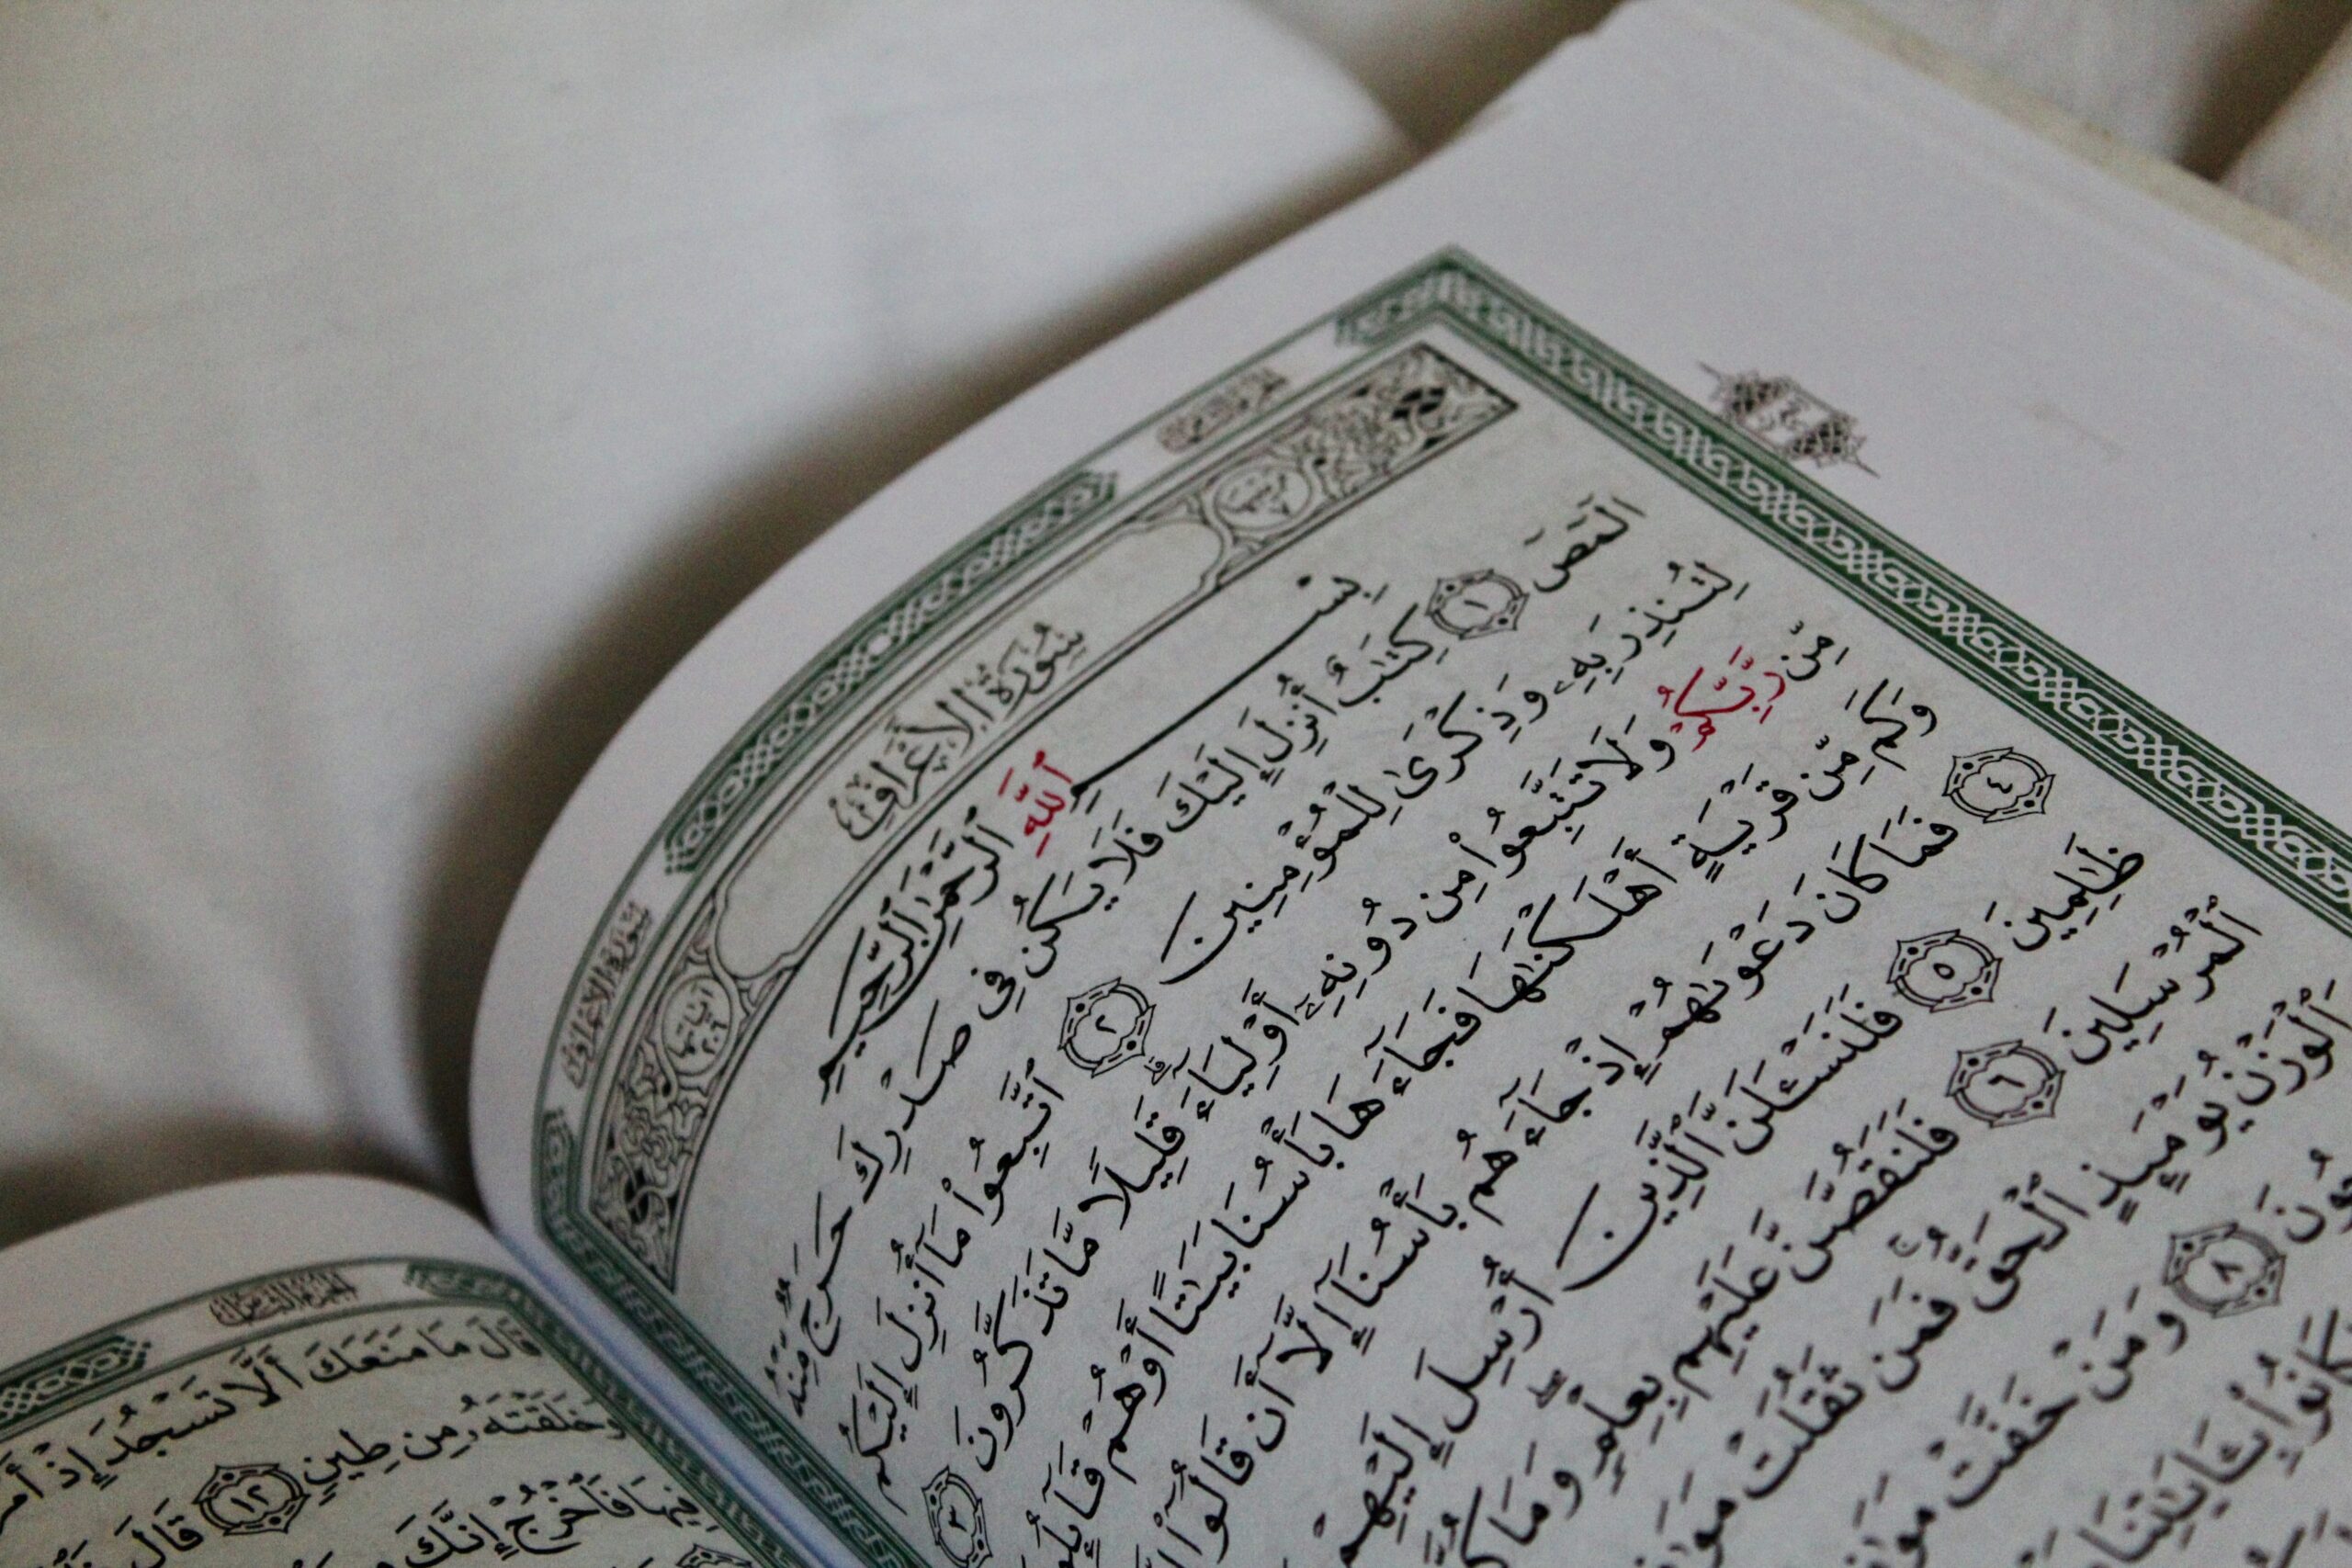 سُورَةُ الأَعْرَافِ
سُورَةُ الأَعْرَافِ
بِسْمِ ٱللَّهِ ٱلرَّحْمَٰنِ ٱلرَّحِيمِ
الٓمٓصٓ ١ كِتَٰبٌ أُنزِلَ إِلَيْكَ فَلَا يَكُن فِى صَدْرِكَ حَرَجٌ مِّنْهُ
لِتُنذِرَ بِهِۦ وَذِكْرَىٰ لِلْمُؤْمِنِينَ ٢ ٱتَّبِعُوا۟ مَآ أُنزِلَ إِلَيْكُم
مِّن رَّبِّكُمْ وَلَا تَتَّبِعُوا۟ مِن دُونِهِۦٓ أَوْلِيَآءَ ۗ قَلِيلًا مَّا تَذَكَّرُونَ ٣
وَكَم مِّن قَرْيَةٍ أَهْلَكْنَٰهَا فَجَآءَهَا بَأْسُنَا بَيَٰتًا أَوْ هُمْ قَآئِلُو
٤ فَمَا كَانَ دَعْوَىٰهُمْ إِذْ جَآءَهُم بَأْسُنَآ إِلَّآ أَن قَالُوٓا۟
ظَٰلِمِينَ ٥ فَلَنَسْـَٔلَنَّ ٱلَّذِينَ أُرْسِلَ إِلَيْهِمْ
ٱلْمُرْسَلِينَ ٦ فَلَنَقُصَّنَّ عَلَيْهِم بِعِلْمٍ ۖ وَمَا كُ
ٱلْوَزْنُ يَوْمَئِذٍ ٱلْحَقُّ ۚ فَمَن ثَقُلَتْ مَوَٰ
ُونَ ٨ وَمَنْ خَفَّتْ مَوَٰ
كَانُوا۟ بِـَٔايَٰتِنَا
قَالَ مَا مَنَعَكَ أَلَّا تَسْجُدَ إِذْ أَمَرْ
وَخَلَقْتَهُۥ مِن طِينٍ ١٢ قَالَ
فِيهَا فَٱخْرُجْ إِنَّكَ